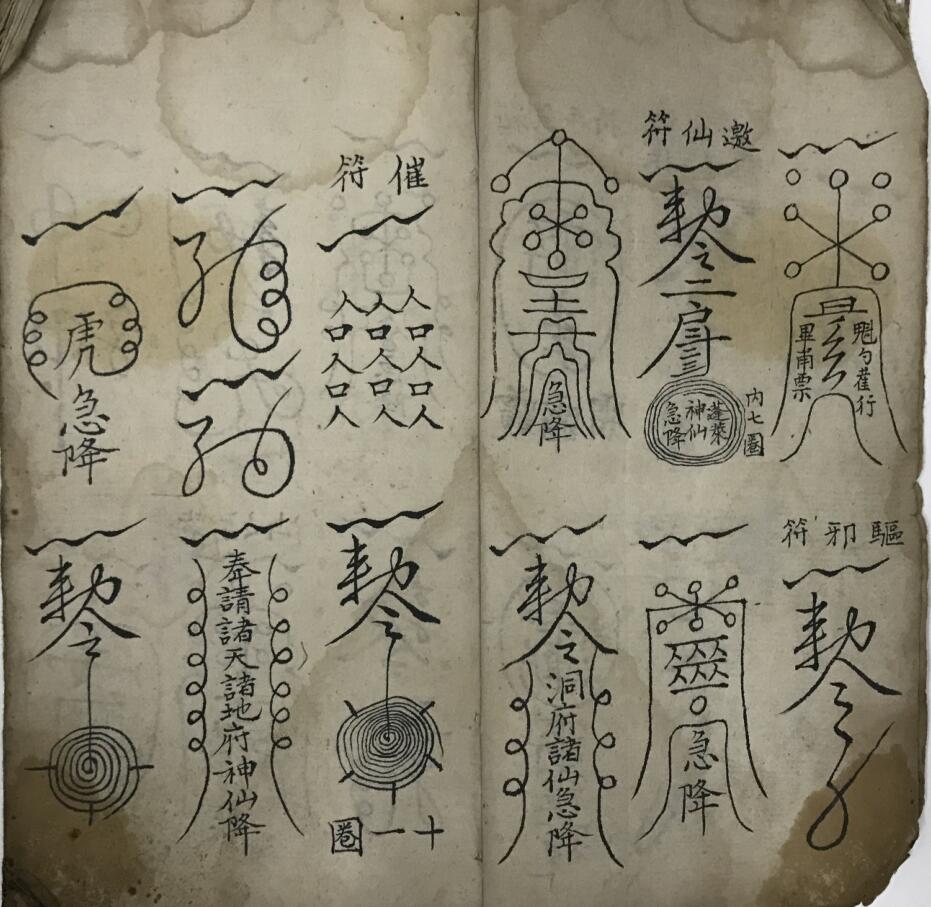 魁勺雚行
畢甫票
邀仙符
勅令二
蓬萊
神仙
急降
内七圈
急降
驅邪符
勅令
急降
勅令洞府諸仙急降
催符
人口人口人
人口人口人
人口人口人
虎急降
勅令
十一圈
奉請諸天諸地府神仙降
勅令